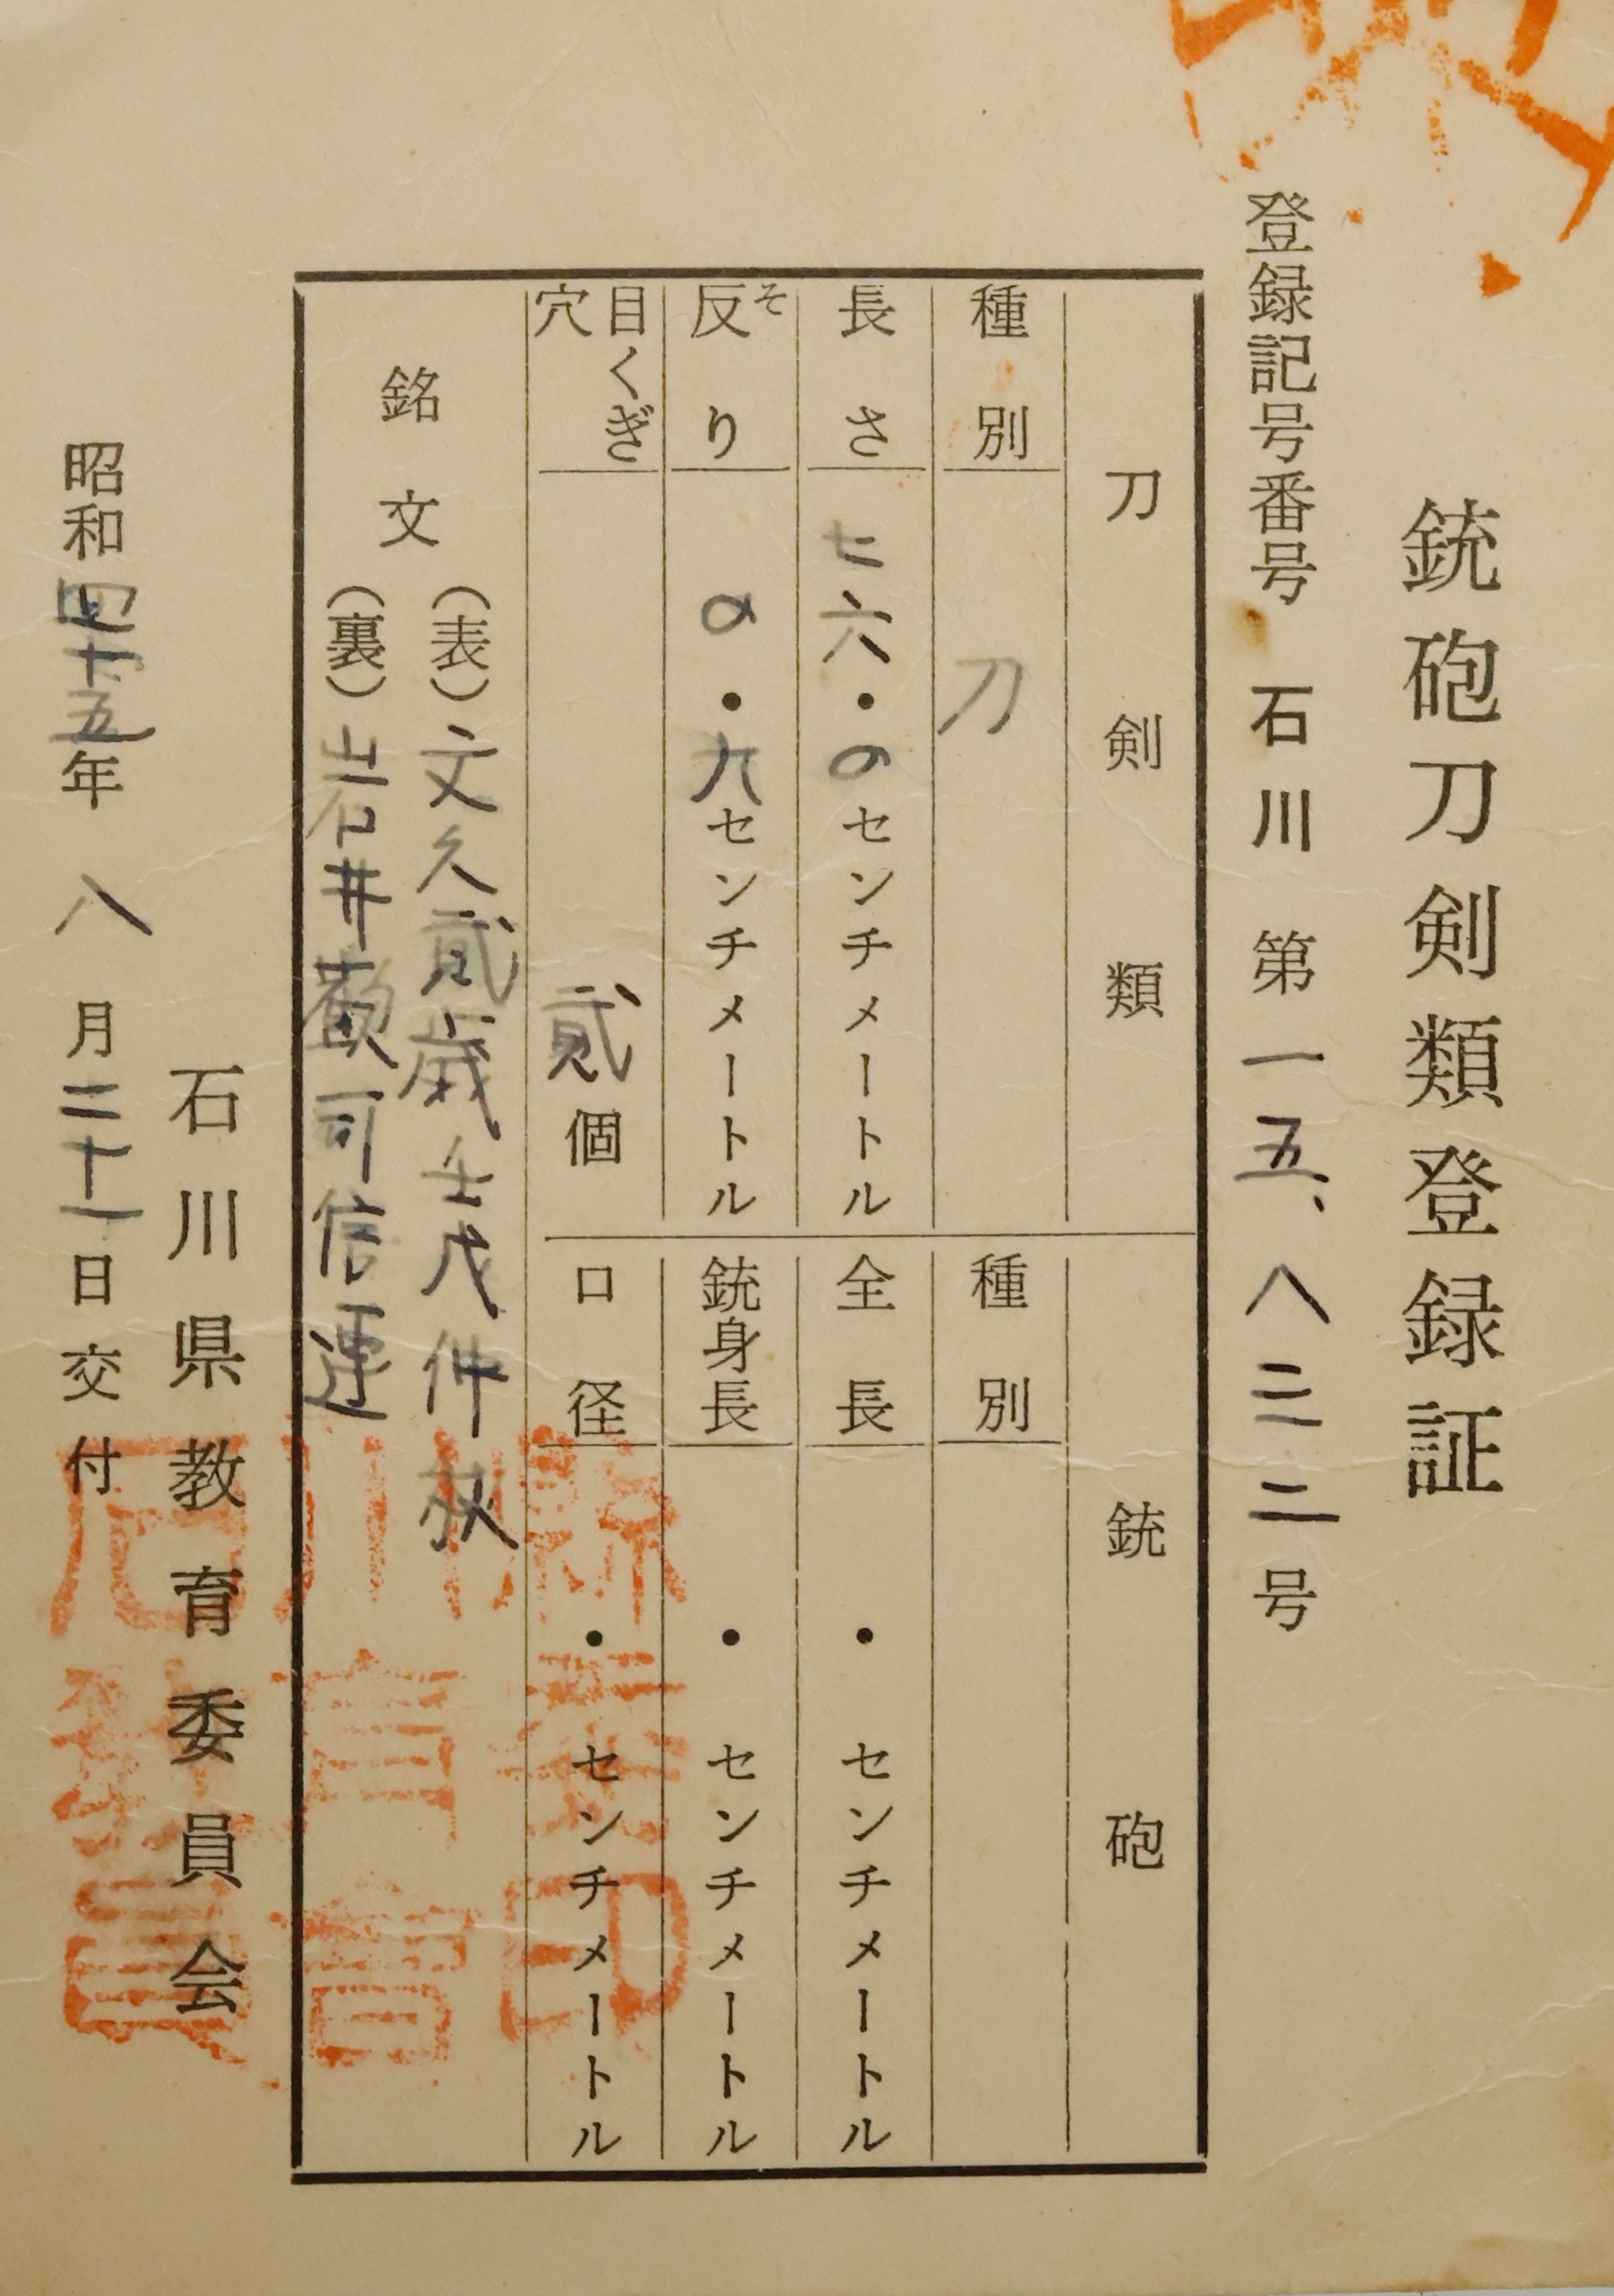 銃砲刀剣類登録証
登録記号番号 石川 第一五、八二二号
刀剣類
種別 刀
長さ 七六・〇センチメートル
反り 〇・九センチメートル
そ
目くぎ穴 貳個
銘文
(表)文久貳歳壬戌仲秋
(裏)岩井 信運
銃砲
種別
全長 ・ センチメートル
銃身長 ・ センチメートル
口径 ・ センチメートル
昭和四十五年 八月二十一日交付
石川県教育委員会